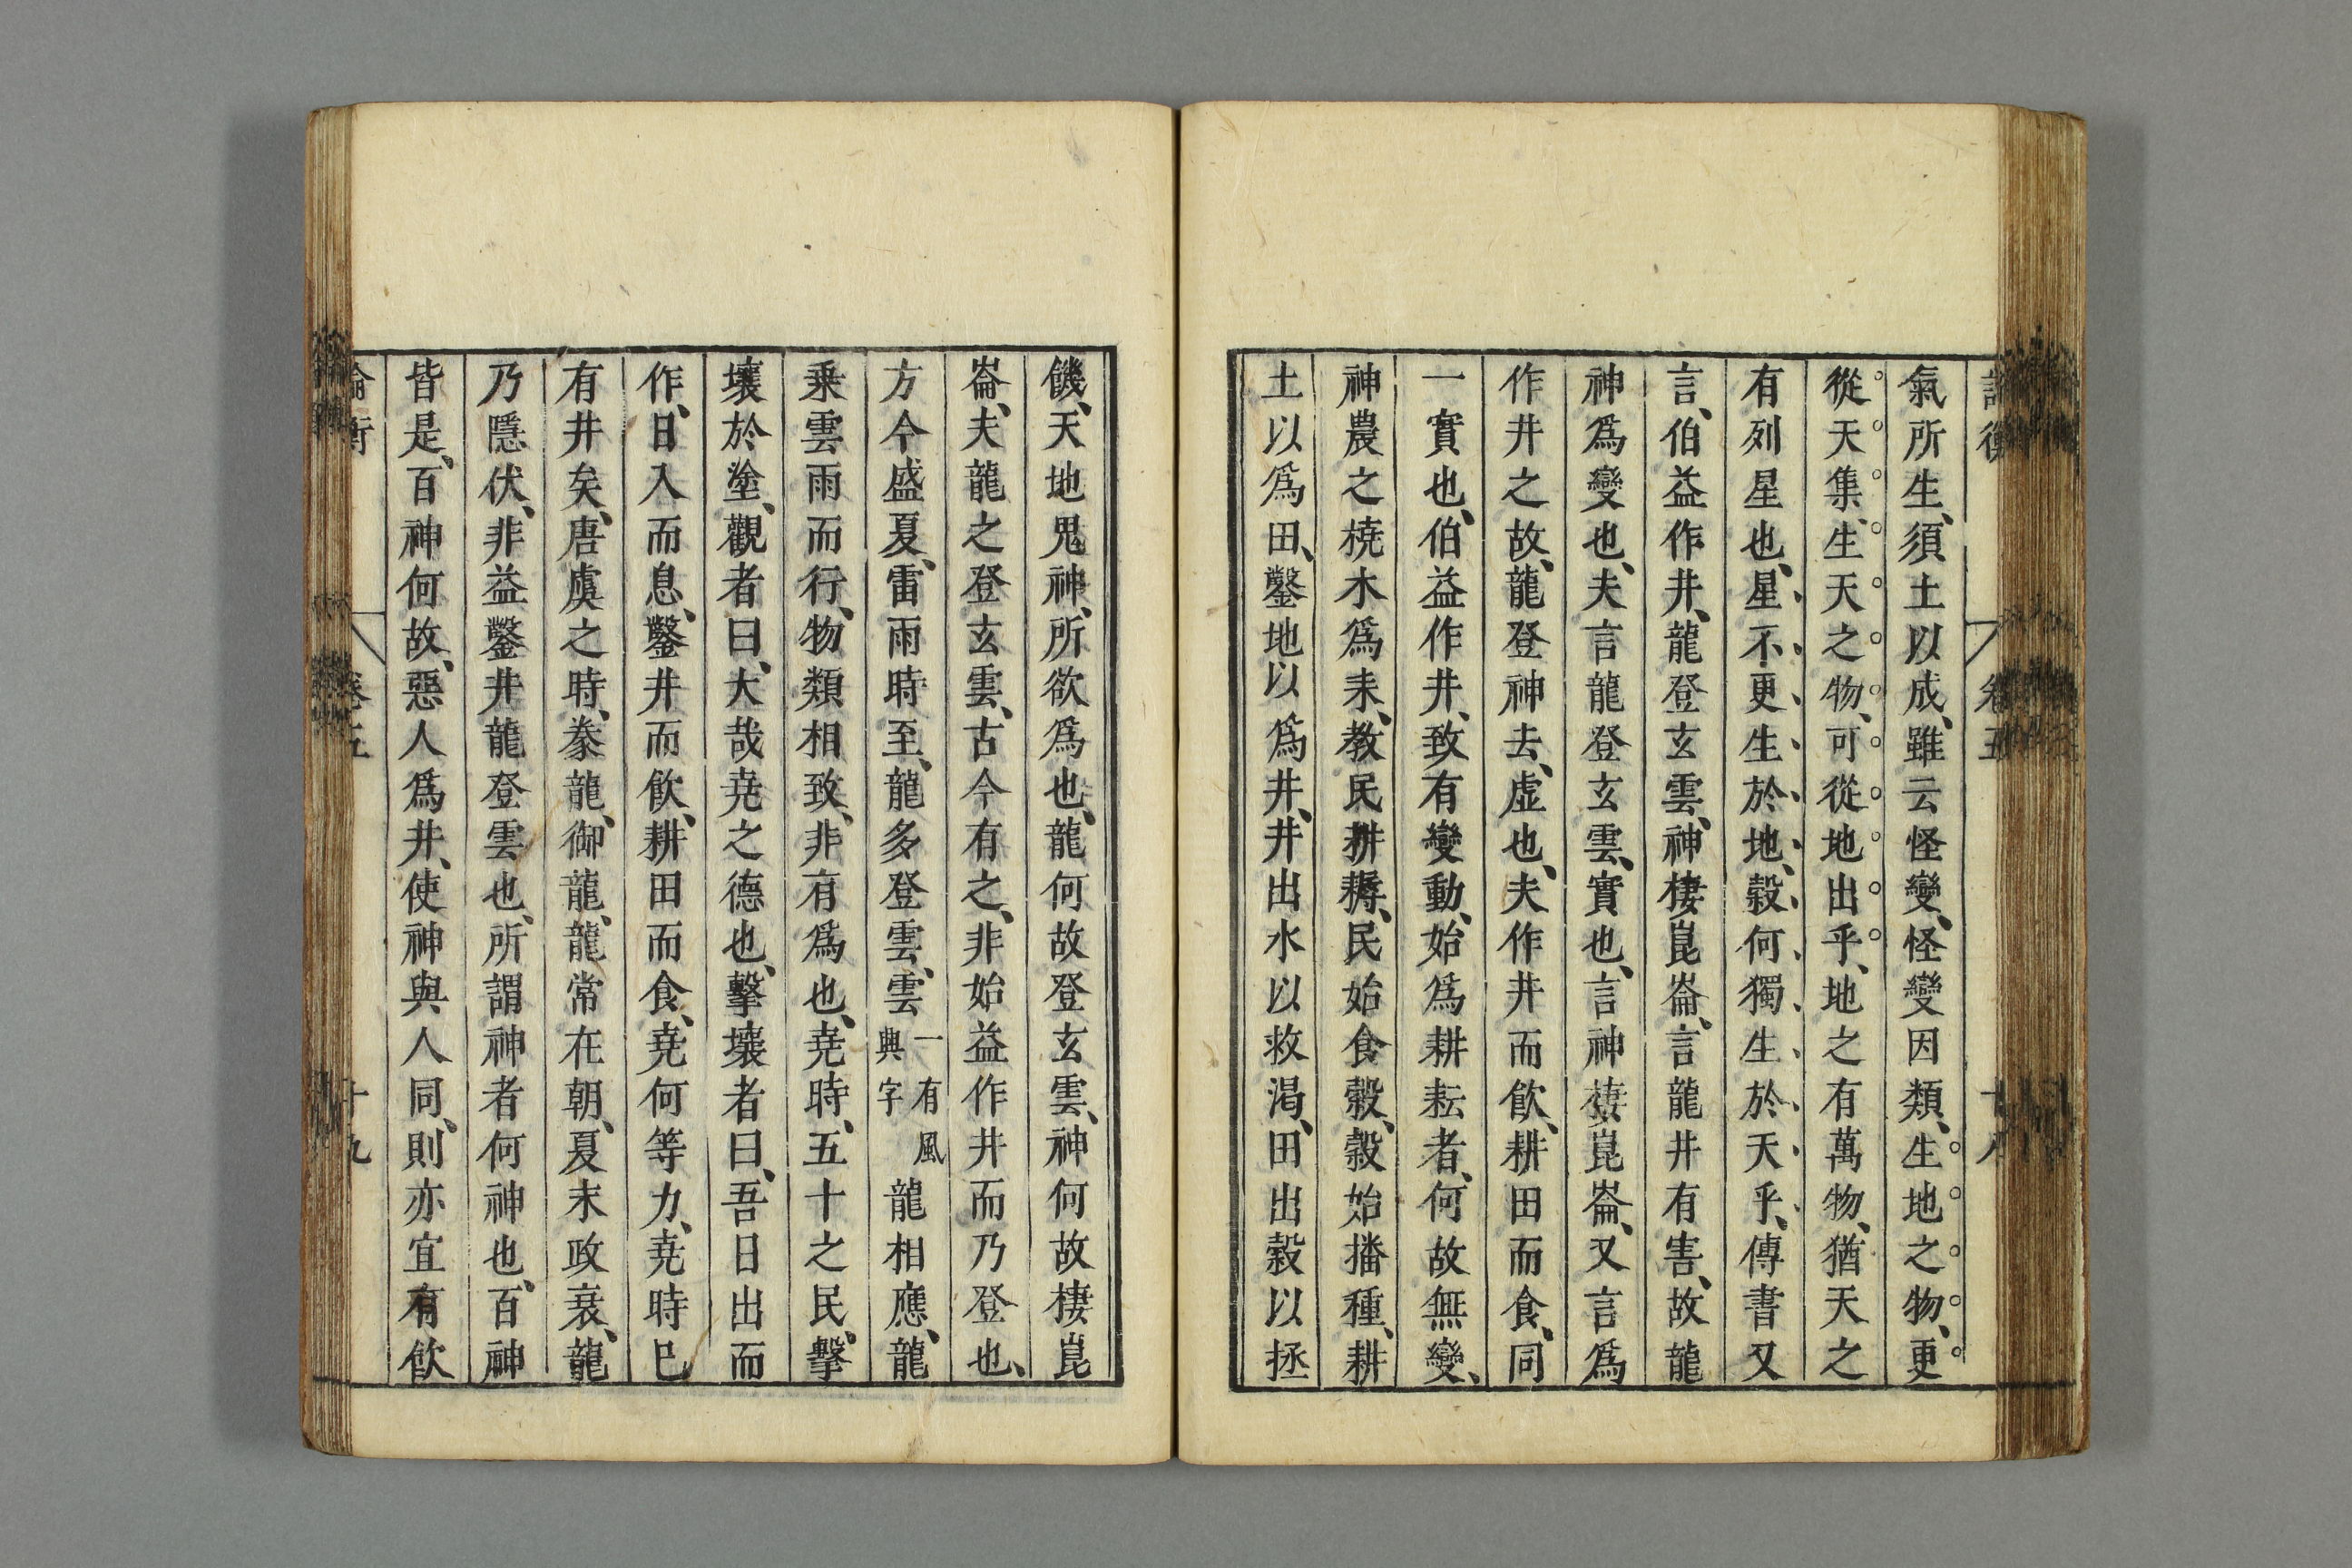 論衡 卷五 十八
氣所生、須土以成、雖云怪變、怪變因類、生地之物、更
從天集、生天之物、可從地出乎、地之有萬物、猶天之
有列星也、星不更生於地、穀何獨生於天乎、傳書又
言、伯益作井、龍登玄雲、神棲崑崙、言龍井有害、故龍
神爲變也、夫言龍登玄雲、實也、言神棲崑崙、又言爲
作井之故、龍登神去、虛也、夫作井而飲、耕田而食、同
一實也、伯益作井、致有變動、始爲耕耘者、何故無變、
神農之橈木爲耒、教民耕耨、民始食穀、穀始播種、耕
土以爲田、鑿地以爲井、井出水以救渴、田出穀以拯
饑、天地鬼神、所欲爲也、龍何故登玄雲、神何故棲崑
崙、夫龍之登玄雲、古今有之、非始益作井而乃登也、
方今盛夏、雷雨時至、龍多登雲、雲一有風與字龍相應、龍
乘雲雨而行、物類相致、非有爲也、堯時、五十之民、擊
壤於塗、觀者曰、大哉堯之德也、擊壤者曰、吾日出而
作、日入而息、鑿井而飲、耕田而食、堯何等力、堯時已
有井矣、唐虞之時、豢龍、御龍、龍常在朝、夏末政衰、龍
乃隱伏、非益鑿井龍登雲也、所謂神者何神也、百神
皆是、百神何故、惡人爲井、使神與人同、則亦宜有飲
論衡 卷五 十九